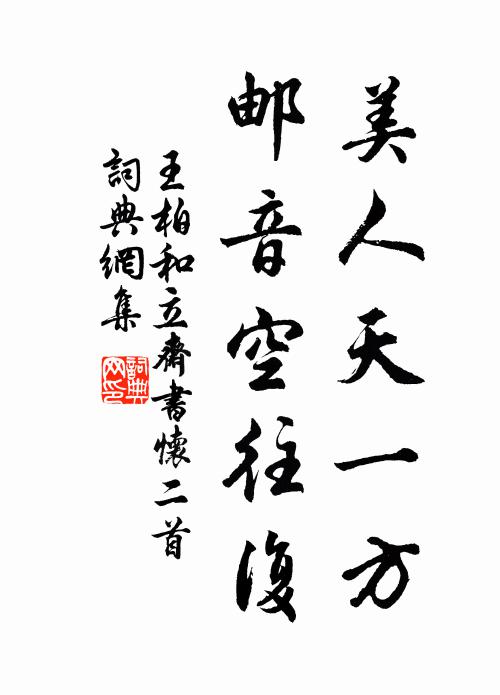 美人天一方
邮音空往復
王柏和立齋書懷二首
詞典網集
詞典網印